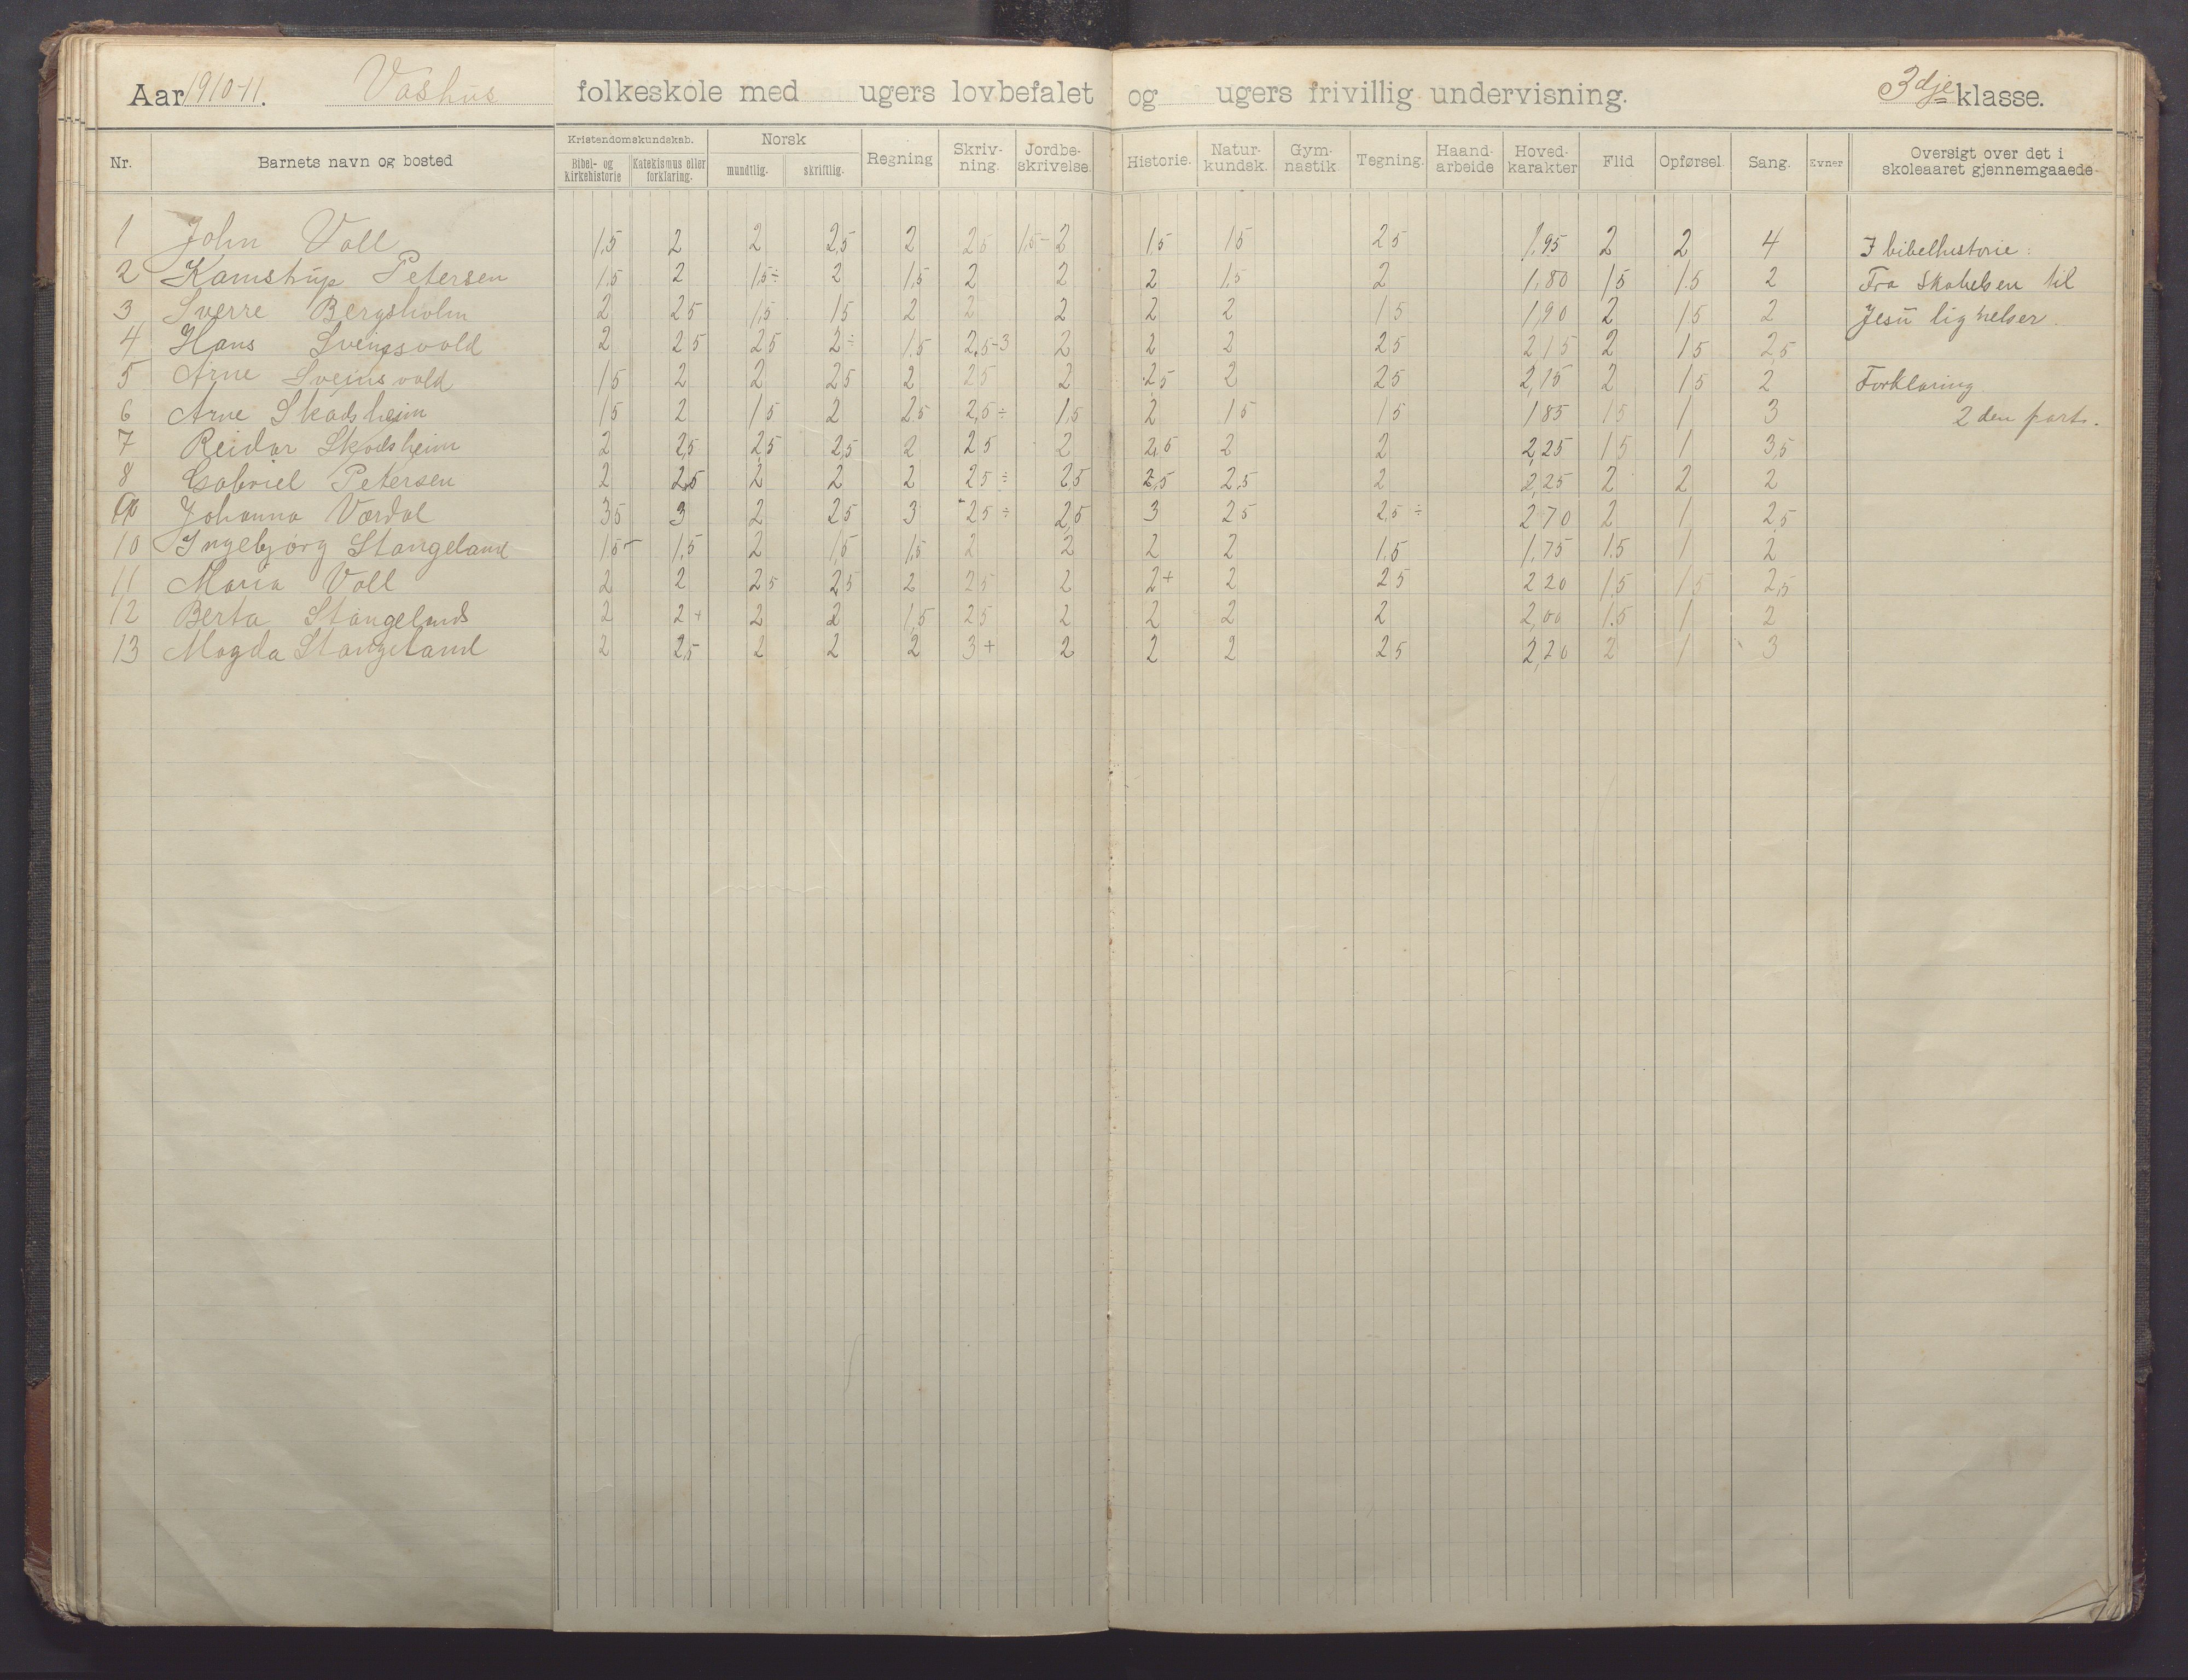 Aar 1910-11. Vashus folkeskole med ugers lovbefalet og ugers frivillig undervisning. 3dje klasse.
Nr. Barnets navn og bosted Kristendomskundskab. Bibel- og kirkehistorie Katekismus eller forklaring. Norsk mundtlig. skriftlig. Regning Skriv-ning. Jordbe-skrivelse. Historie. Natur-kundsk. Gym-nastik. Tegning. Haand-arbeide Hoved-karakter Flid Opførsel Sang. Evner Oversigt over det i skoleaaret gjennemgaaede
1 John Voll 1,5 2 2 2,5 2 2,5 1,5- 2 1,5 15 25 1,95 2 2 4 I bibelhistorie:
2 Kamstrup Petersen 1,5 2 1,5÷ 2 1,5 2 2 2 1,5 2 1,80 15 1.5 2 Fra skabelsen til
3 Sverre Bergsholm 2 25 1,5 15 2 2 2 2 2 15 1,90 2 15 2 Jesu lignelser.
4 Hans Sveinsvold 2 25 25 2÷ 1,5 2,5-3 2 2 2 25 2,15 2 15 2,5
5 Arne Sveinsvold 15 2 2 25 2 25 2 2,5 2 25 2,15 2 15 2 Forklaring
6 Arne Skadsheim 15 2 15 2 2.5 2,5÷ 1,5 2 15 15 185 15 1 3 2 den part.
7 Reidar Skodsheim 2 2,5 2,5 2,5 2 25 2 2,5 2 2 2,25 15 1 3,5
8 Gabriel Petersen 2 2,5 2 2 2 25÷ 25 2,5 2,5 2 2,25 2 2 2
9 Johanna Værdal 35 3 2 25 3 25÷ 2,5 3 25 2,5÷ 270 2 1 2,5
10 Ingebjørg Stangeland 15- 1,5 2 1,5 1,5 2 2 2 2 1.5 1.75 1.5 1 2
11 Maria Voll 2 2 25 2,5 2 25 2 2+ 2 25 220 1,5 15 2,5
12 Berta Stangeland 2 2+ 2 2 1,5 25 2 2 2 2 2,00 1.5 1 2
13 Magda Stangeland 2 2,5 2 2 2 3+ 2 2 2 25 2,20 2 1 3